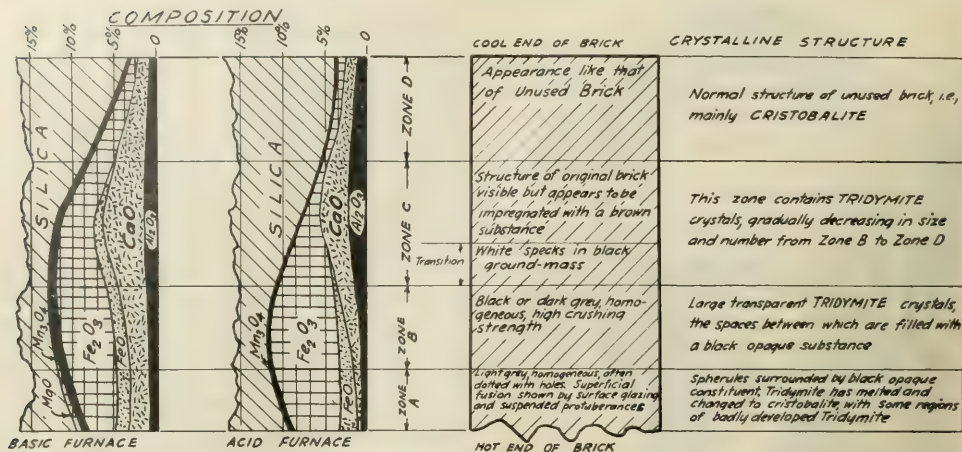 COMPOSITION
15%
10%
5%
0
15%
10%
5%
0
SILICA
CaO
Al2O3
Mn3O4
MgO
Fe2O3
FeO
BASIC FURNACE
SILICA
CaO
Al2O3
Mn3O4
Fe2O3
FeO
ACID FURNACE
ZONE D
ZONE C
Transition
ZONE B
ZONE A
COOL END OF BRICK
Appearance like that
of Unused Brick
Structure of original brick
visible but appears to be
impregnated with a brown
substance
White specks in black
ground-mass
Black or dark grey, homo-
geneous, high crushing
strength
Light grey, homogeneous, often
dotted with holes. Superficial
fusion shown by surface glazing
and suspended protuberances
HOT END OF BRICK
CRYSTALLINE STRUCTURE
Normal structure of unused brick, i.e.,
mainly CRISTOBALITE
This zone contains TRIDYMITE
crystals, gradually decreasing in size
and number from Zone B to Zone D
Large transparent TRIDYMITE crystals,
the spaces between which are filled with
a black opaque substance
Spherules surrounded by black opaque
constituent, Tridymite has melted and
changed to cristobalite, with some regions
of badly developed Tridymite